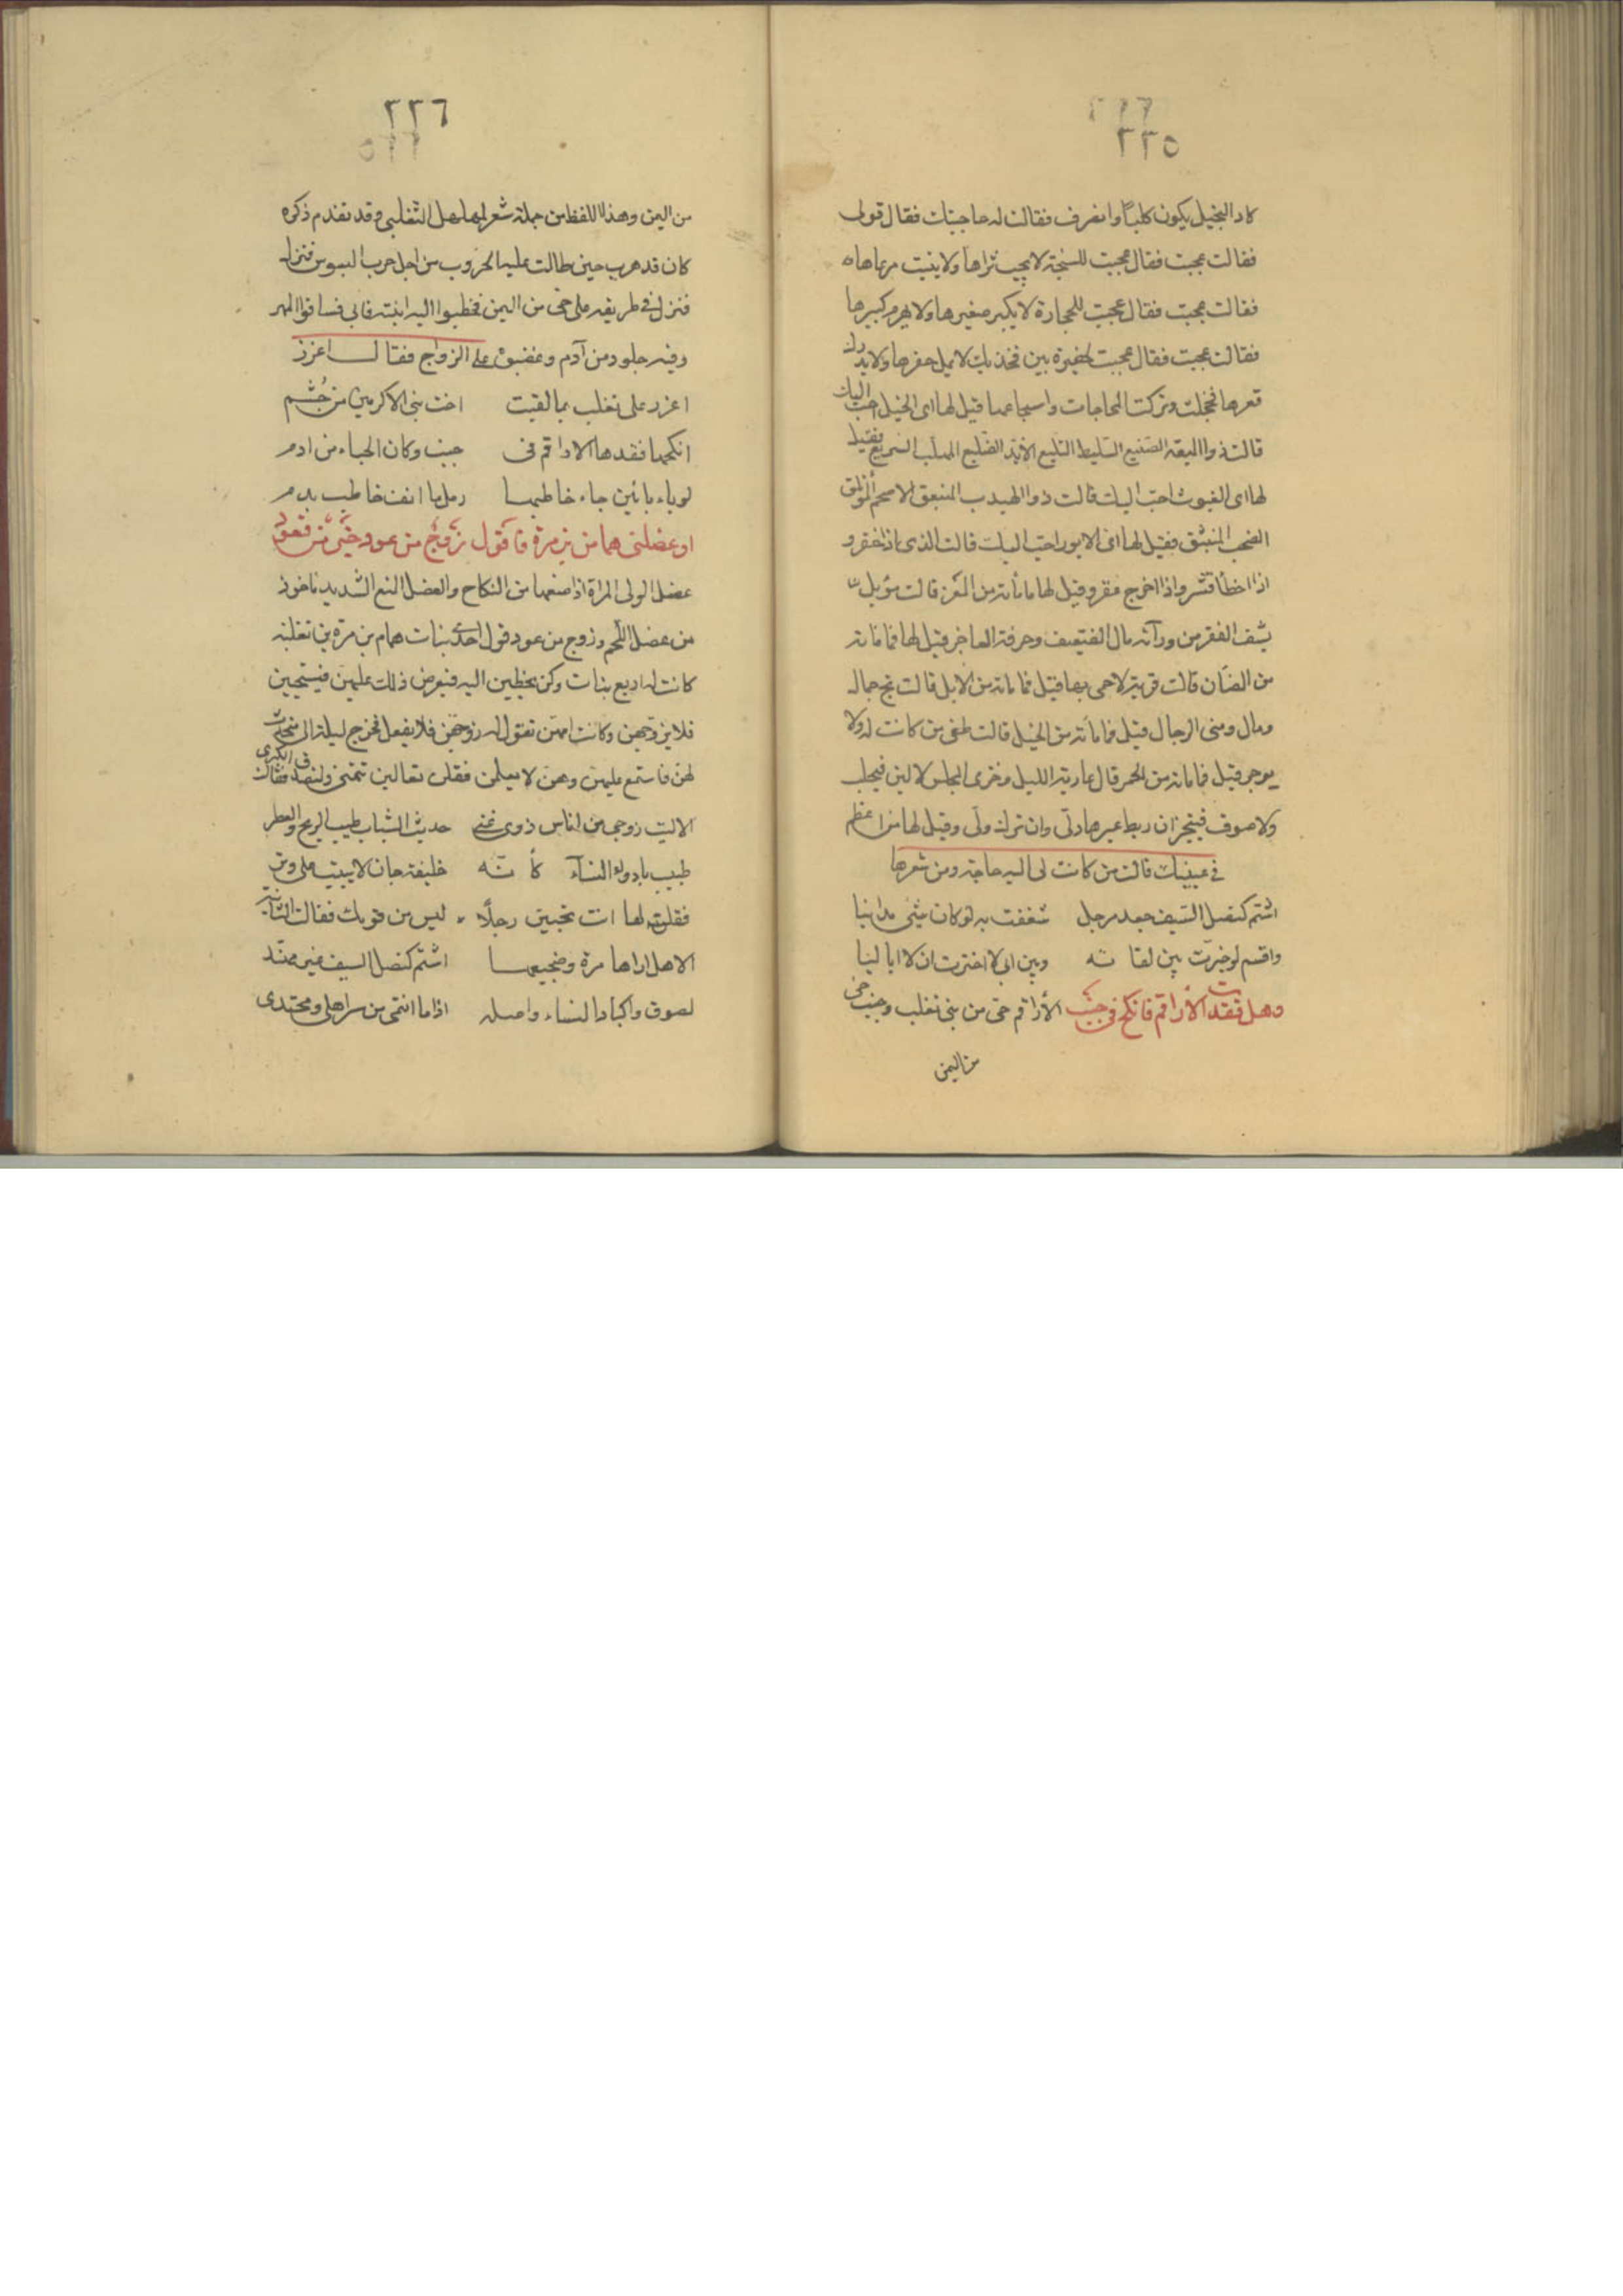 ٢٢٥
كاد البخيل يكون كلبًا وانصرف فقالت له حاجيتك فقال قولى
فقالت عجبت فقال عجبت للسبخة لا يجف ثراها ولا ينبت مرعاها
فقالت عجبت فقال عجبت للحجارة لا يكبر صغيرها ولا يهرم كبيرها
فقالت عجبت فقال عجبت لحفيرة بين فخذيك لا يمل حفرها ولا يدرك
قعرها فخجلت وتركت المحاجات واسجاعها قيل لها اى الخيل احب اليك
قالت ذو الميعة الصنيع السليط التليع الايّد الضليع الملهب السريع فقيل
لها اى الغيوث احبّ اليك قالت ذوا الهيدب المنبعق الاسحم المؤتلق
الصخب المنبثق وقيل لها اى الايور احبّ اليك قالت الذى اذا حفرو
اذا اخطأ قشرو اذا اخرج عقرو قيل لها ما مأتة من المعز قالت مؤيل
يشف الفقر من ورآئه مال الضعيف وحرفة العاجز قيل لها فما مائة
من الضأن قالت قرية لا حمى بها قيل فما مائة من الابل قالت بخ جمال
ومال ومنى الرجال قيل فما مأتة من الخيل قالت طغى من كانت له ولا
يوجد قيل فما مائة من الحمر قال عازبة الليل وخزى المجلس لا لبن فيحلب
ولا صوف فيتجز ان ربط عيرها دلّى وان ترك ولّى وقيل لها من اعظم
فى عينيك قالت من كانت لى اليه حاجة ومن شعرها
اشم كنصل السيف جعد مرجل شغفت به لو كان شئ مدانيا
واقسم لو خيرت بين لقائه وبين ابى لاخترت ان لا ابا ليا
وهل فقدت الأراقم فانكح فى جنب الأراقم حى من بنى تغلب وجنب حى
من اليمن
٢٢٦
من اليمن وهذا اللفظ من جملة شعر لمهلهل التغلبى وقد تقدم ذكره
كان قد هرب حين طالت عليه الحروب من اجل حرب البسوس فنزل
فنزل فى طريقه على حى من اليمن فخطبوا اليه ابنته فابى فساقوا المهر
وفيه جلود من آدم وغصبوه على الزواج فقال اعزز
اعزز على تغلب بما لقيت اخت بنى الاكرمين من جُشَم
انكحها فقدها الاراقم فى جنب وكان الحباء من ادم
لو باء بابنين جاء خاطبها رمل ما انف خاطب بدم
او عضلنى همام بن مرة فاقول زوج من عود خير من قعود
عضل الولى المراة اذا منعها من النكاح والعضل المنع الشديد ماخوذ
من عضل اللحم وزوج من عود قول احدى بنات همام بن مرة بن ثعلبة
كانت له اربع بنات وكن يخطبن اليه فيعرض ذلك عليهن فيستحيين
فلا يزوجهن وكانت امهن تقول له زوجهن فلا يفعل فخرج ليلة الى متحدث
لهن فاستمع عليهن وهن لا يعلمن فقلن تعالين نتمنى ولنصدق فقالت الكبرى
الا ليت زوجى من اناس ذوى غنى حديث الشباب طيب الريح والعطر
طبيب بادواء النسآء كأنه خليفة جان لا يبيت على وتر
فقلن لها انت تحبين رجلًا ليس من قومك فقالت الثانية
الا هل اراها مرة وضجيعها اشم كنصل السيف غير مهند
لصوق باكباد النساء واصله اذا ما انتمى من سر اهلى ومحتدى